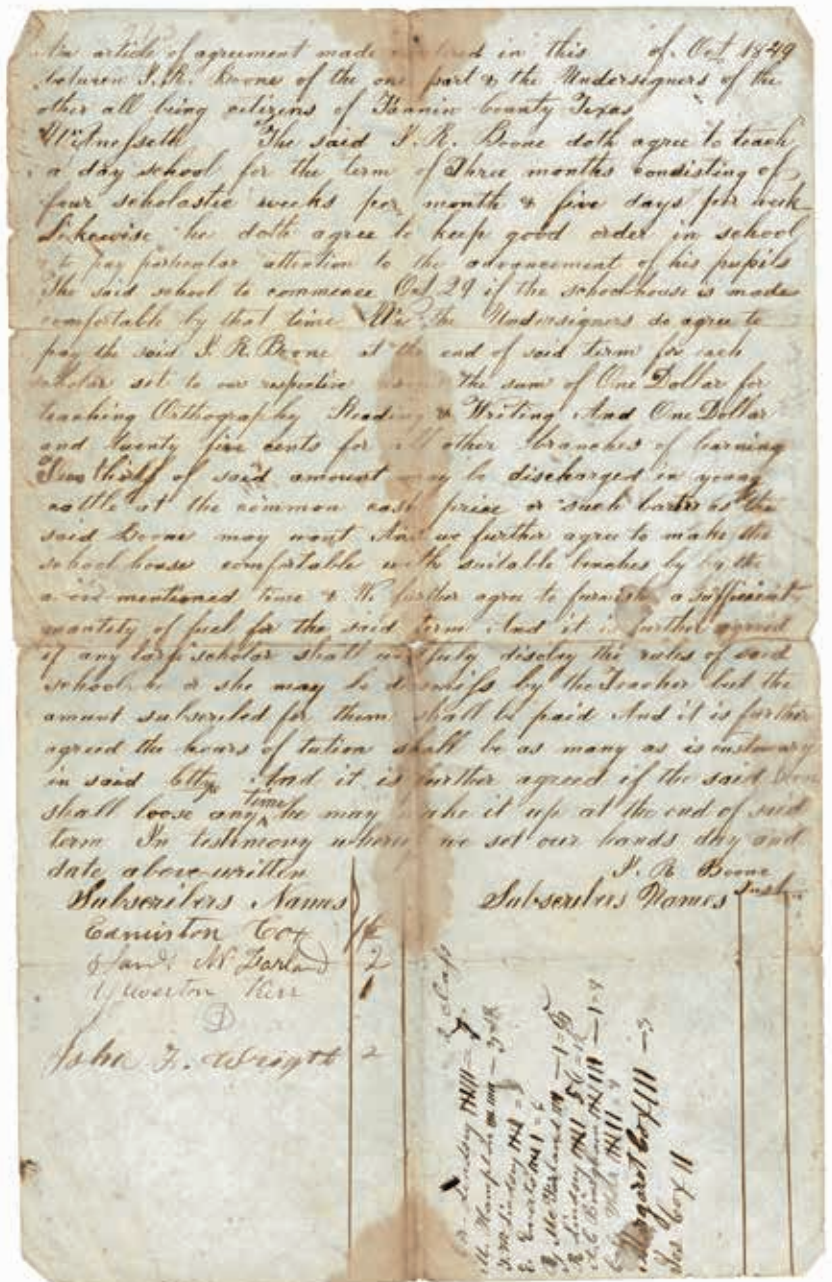 An article of agreement made entered in this of Oct 1849
between I. R. Boone of the one part & the Undersigners of the
other all being citizens of Fannin County Texas
Witnesseth The said I. R. Boone doth agree to teach
a day school for the term of Three months consisting of
four scholastic weeks per month & five days per week
Likewise he doth agree to keep good order in school
to pay particular attention to the advancement of his pupils
The said school to commence Oct 29 if the school-house is made
comfortable by that time We the Undersigners do agree to
pay the said I. R. Boone at the end of said term for each
scholar set to our respective the sum of One Dollar for
teaching Orthography Reading & Writing And One Dollar
and twenty five cents for all other branches of learning
Two thirds of said amount may be discharged in young
cattle at the common cash price or such barter as the
said Boone may want And we further agree to make the
school house comfortable with suitable benches by by the
mentioned time & We further agree to furnish a sufficient
quantity of fuel for the said term And it is further agreed
if any scholar shall disobey the rules of said
school he or she may be by the Teacher but the
amount subscribed for them shall be paid And it is further
agreed the hours of tution shall be as many as is customary
in said And it is further agreed if the said Boone
shall loose any time he may make it up at the end of said
term In testimony where we set our hands day and
date above written
I. R. Boone
Subscribers Names
Edmirston Cox
2
Yewerton Kerr 1
John F. Wright 2
Subscribers Names
Lindsey
M. Hampton
Lindsey
E.
McFarland
R Lindsey
Bingham
Margaret Cox III - 3
Jos Cox 11